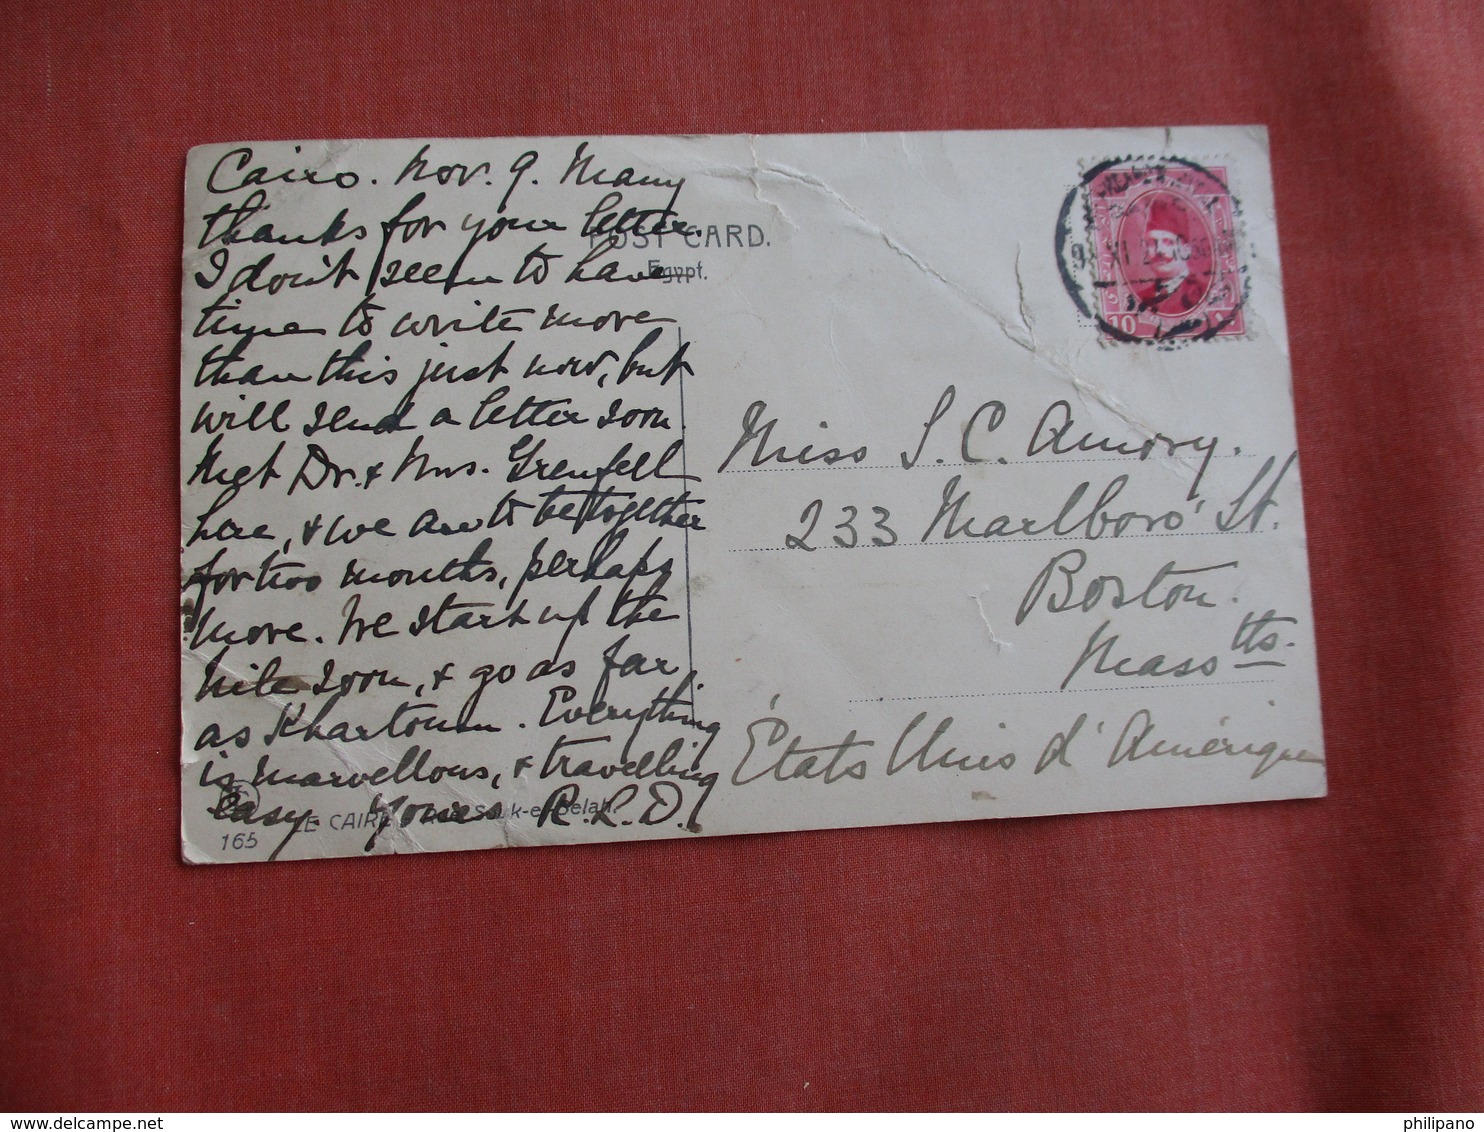 Cairo. Nov. 9. Many
thanks for your letter.
I don't seem to have
time to write more
than this just now, but
will send a letter soon.
Met Dr. & Mrs. Grenfell
here, & we are to be together
for two months, perhaps
more. We start up the
Nile soon, & go as far
as Khartoum. Everything
is marvellous, & travelling
easy. Yours R. L. D.
POST CARD.
Egypt.
165
LE CAIRE
Souk-el-Selah
10
Miss S. C. Amory.
233 Marlboro' St.
Boston.
Masstts.
États Unis d'Amérique
philipano
delcampe.net